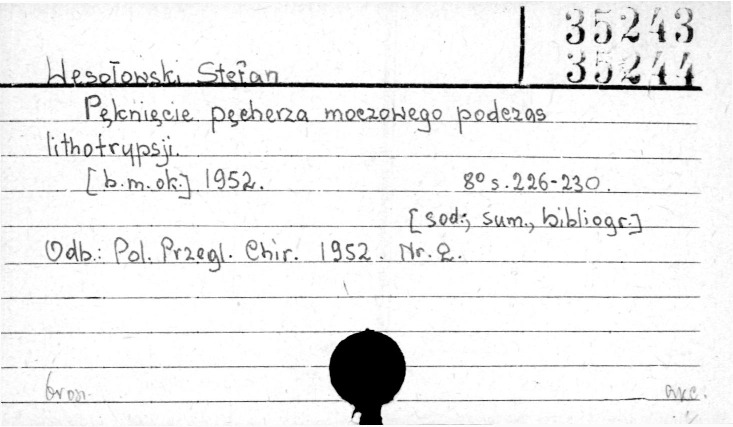 35243
35244
Wesołowski Stefan
Pęknięcie pęcherza moczowego podczas
lithotrypsji.
[b.m.ok.] 1952. 8° s.226-230.
[sod:, sum., bibliogr.]
Odb.: Pol. Przegl. Chir. 1952. Nr. 2.